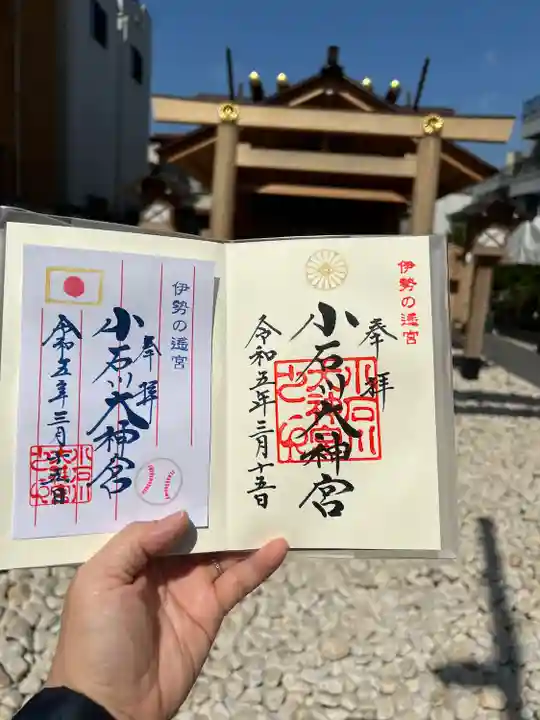 伊勢の遥宮
奉拝
小石川大神宮
小石川
大神宮
之印
令和五年三月十五日
伊勢の遥宮
奉拝
小石川大神宮
令和五年三月十五日